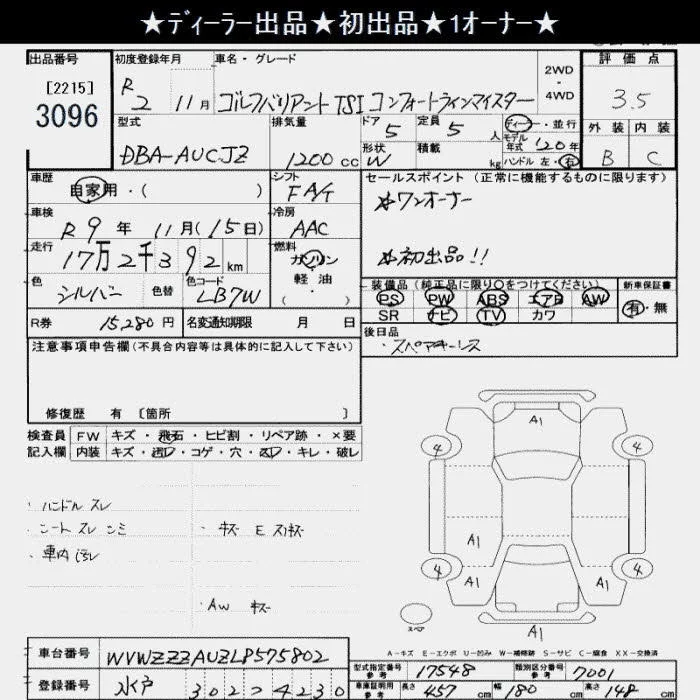 ★ディーラー出品★初出品★1オーナー★
出品番号 [2215] 3096
初度登録年月 R2 11月
車名・グレード ゴルフバリアント TSI コンフォートラインマイスター
2WD・4WD
評価点 3.5
外装 B 内装 C
型式 DBA-AUCJZ
排気量 1200cc
ドア 5 定員 5人
形状 W 積載 kg
ディーラー・並行
モデル年式 '20年
ハンドル 左・右
車歴 自家用・( )
シフト FA/T
車検 R9年11月(15日)
冷房 AAC
走行 17万2千392km
燃料 ガソリン 軽油・( )
色 シルバー 色替 色コード LB7W
R券 15,280円 名変通知期限 月 日
セールスポイント (正常に機能するものに限ります)
☆ワンオーナー
☆初出品!!
装備品 (純正品に限り○をつけてください) 新車保証書
PS PW ABS エアB AW
SR ナビ TV カワ 有・無
後日品
・スペアキーレス
注意事項申告欄 (不具合内容等は具体的に記入して下さい)
修復歴 有 〔箇所 〕
検査員 FW キズ・飛石・ヒビ割・リペア跡・×要
記入欄 内装 キズ・コゲ・穴・キレ・破レ
・ハンドル スレ
・シート スレ シミ
・車内 汚レ
・キズ E スリキズ
・AW キズ
A1
4 4
A1
4 4
A1 A1
A1
スペア
A-キズ E-エクボ U-凹み W-補修跡 S-サビ C-腐食 XX-交換済
車台番号 WVWZZZAUZLP575802
登録番号 水戸 302 ・4230
型式指定番号 参考 17548 類別区分番号 参考 7001
車庫証明用 参考 長さ 457cm 幅 180cm 高さ 148cm